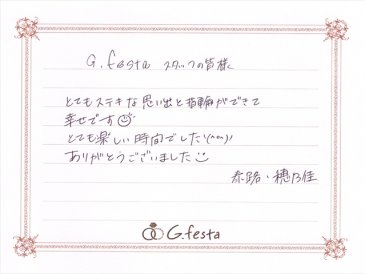 G.festa スタッフの皆様
とてもステキな思い出と指輪ができて
幸せです
とても楽しい時間でした\(^^)/
ありがとうございました
泰路・穂乃佳
G.festa